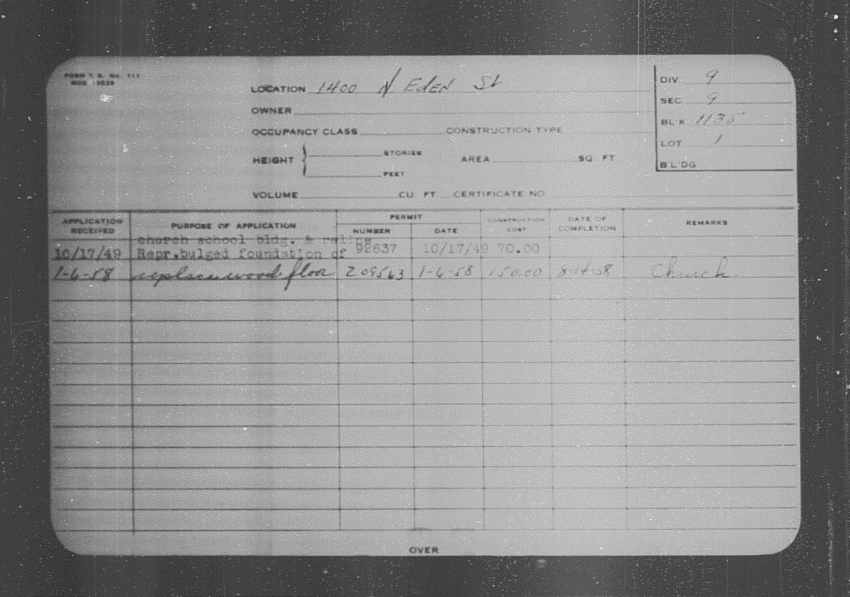 FORM B. B. No. 111
MOD
LOCATION 1400 N EDEN St
OWNER
OCCUPANCY CLASS CONSTRUCTION TYPE
HEIGHT STORIES AREA SQ FT
FEET
VOLUME CU. FT. CERTIFICATE NO.
DIV. 9
SEC 9
BL'K 1135
LOT 1
B'L'DG
APPLICATION RECEIVED PURPOSE OF APPLICATION PERMIT NUMBER DATE CONSTRUCTION COST DATE OF COMPLETION REMARKS
church school bldg. &
10/17/49 Repr.bulged foundation of 92637 10/17/49 70.00
1-6-58 replace wood floor 209563 1-6-58 150.00 8-14-58 Church.
OVER